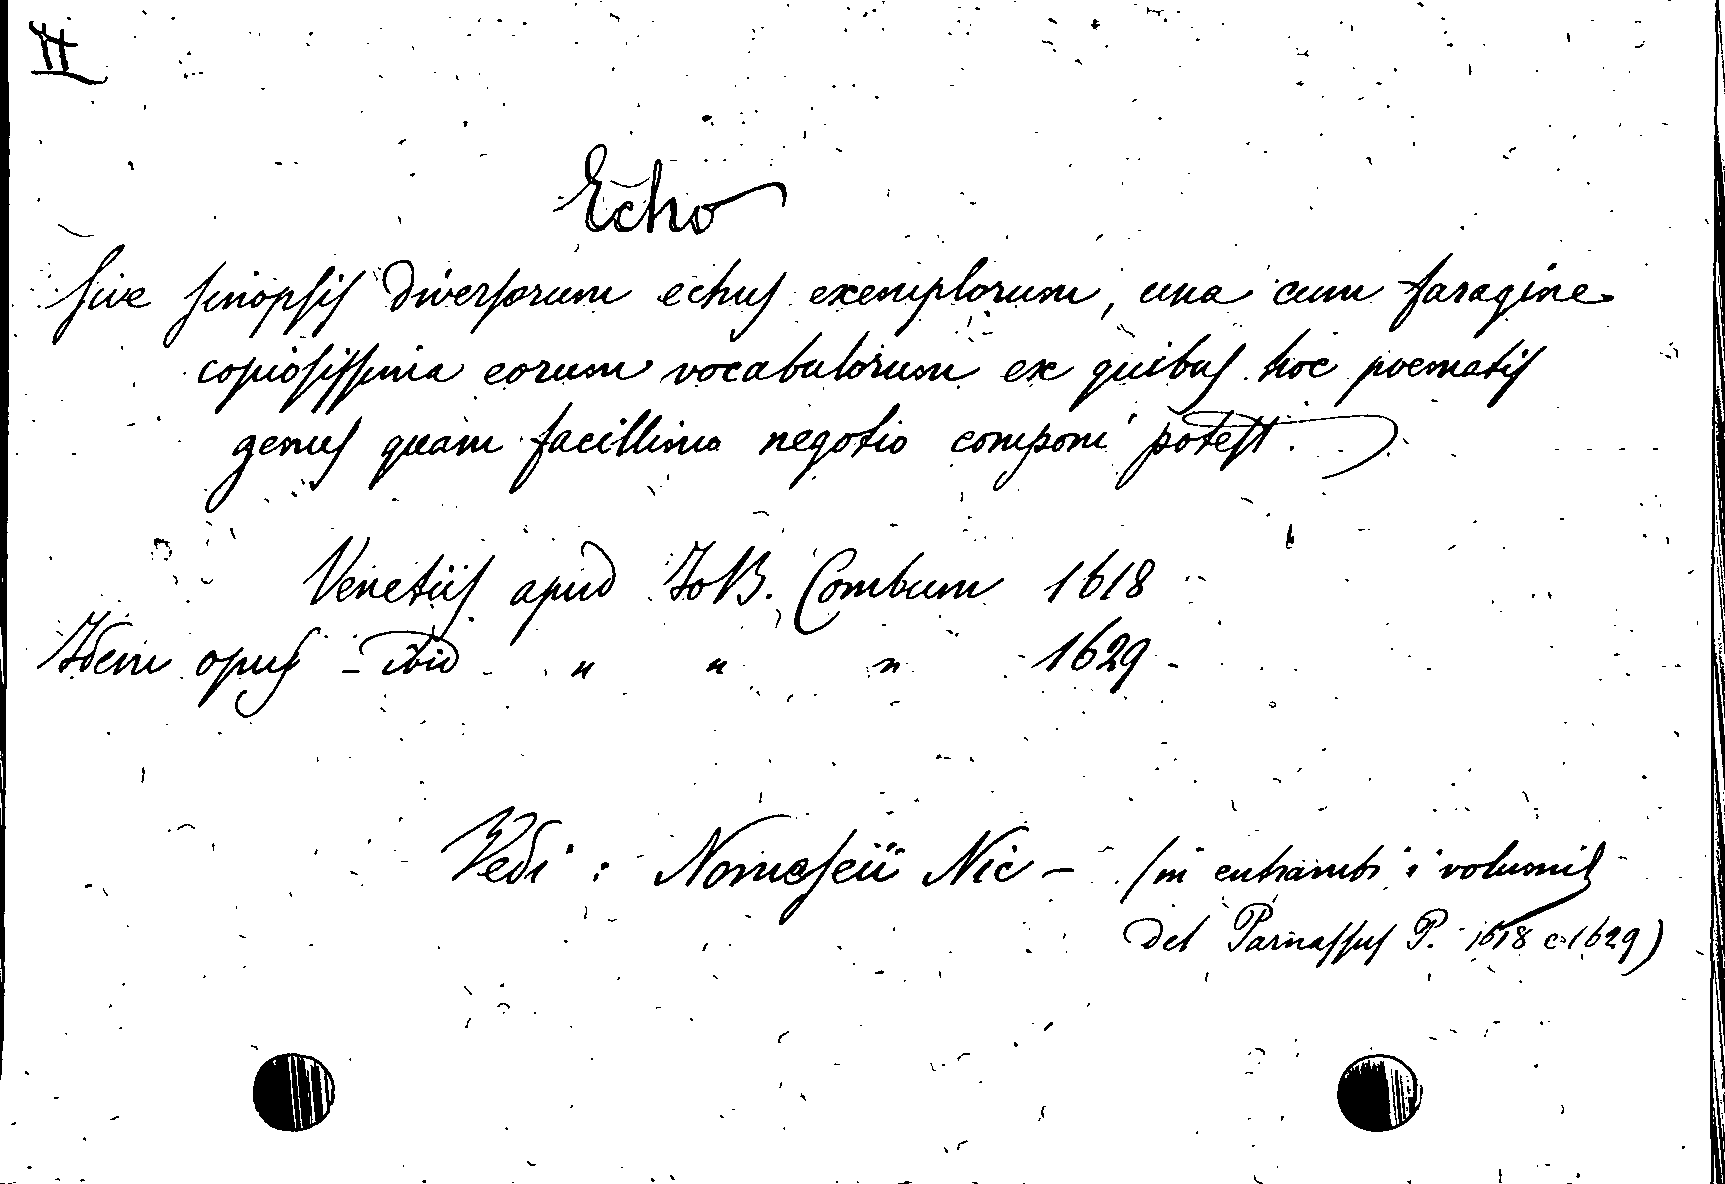 II
Echo
sive sinopsis diversorum echus exemplorum, una cum faragine
copiosissima eorum vocabulorum ex quibus hoc poematis
genus quam facillimo negotio componi potest.
Venetiis apud Jo B. Combum 1618
Idem opus - ibid " " " 1629 -
Vedi : Nomeseii Nic - (in entrambi i volumi
del Parnassus P. 1618 e 1629)